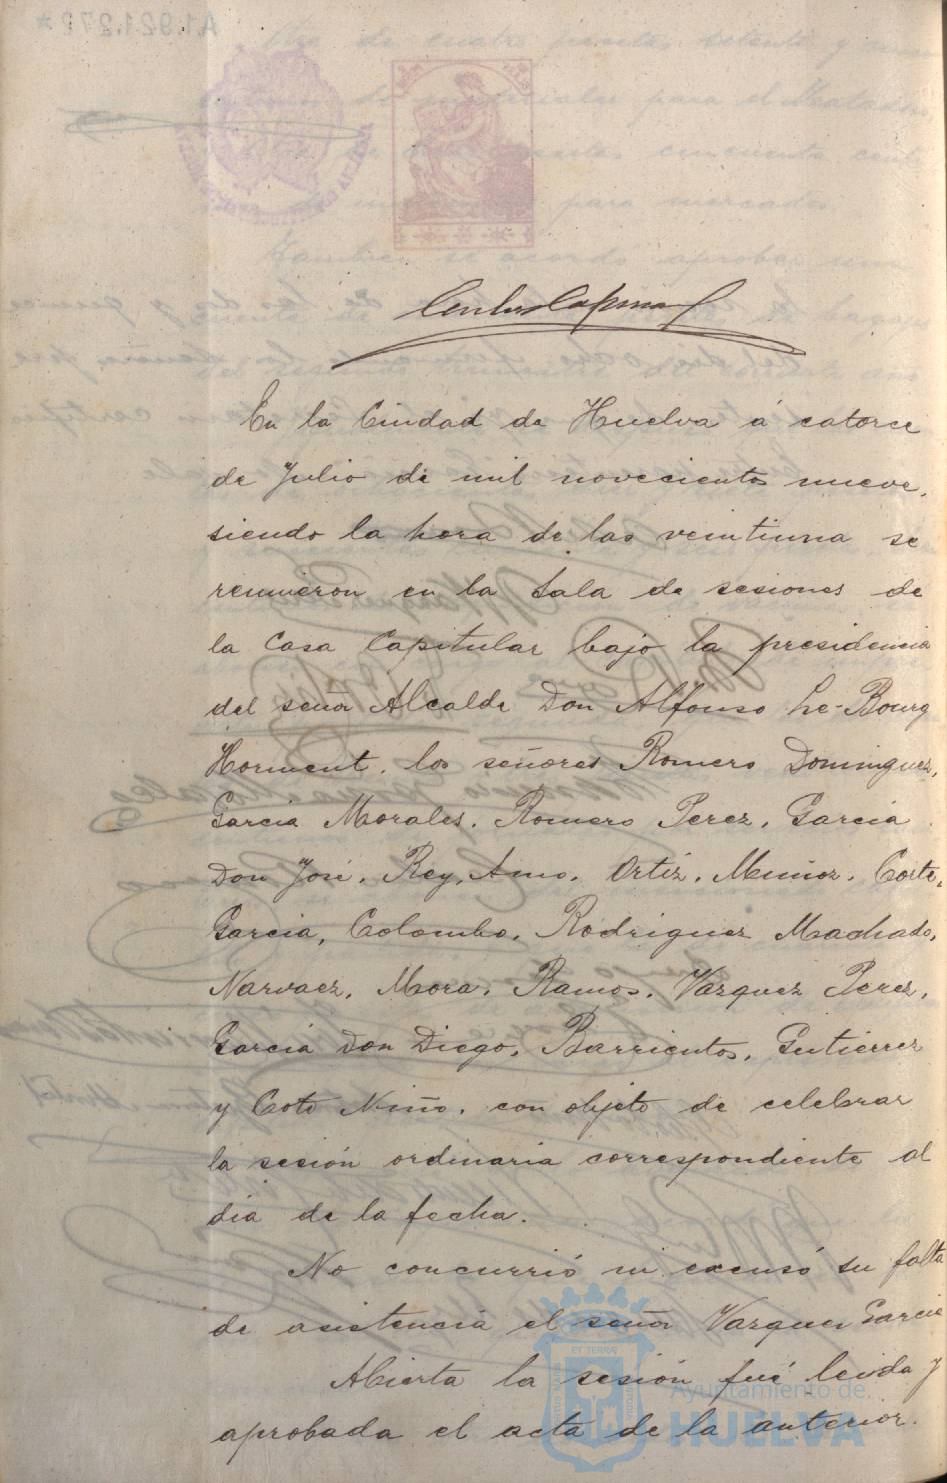 En la Ciudad de Huelva á catorce
de Julio de mil novecientos nueve,
siendo la hora de las veintiuna se
reunieron en la Sala de sesiones de
la Casa Capitular bajo la presidencia
del señor Alcalde Don Alfonso Le-Bourg
Horment, los señores Romero Dominguez,
Garcia Morales, Romero Perez, Garcia
Don José, Rey, Amo, Ortiz, Muñoz, Corte,
Garcia, Colombo, Rodriguez Machado,
Narvaez, Mora, Ramos, Vazquez Perez,
Garcia Don Diego, Barrientos, Gutierrez
y Coto Niño, con objeto de celebrar
la sesión ordinaria correspondiente al
dia de la fecha.
No concurrió ni excusó su falta
de asistencia el señor Vazquez Garcia
Abierta la sesión fué leida y
aprobada el acta de la anterior.
Ayuntamiento de
HUELVA